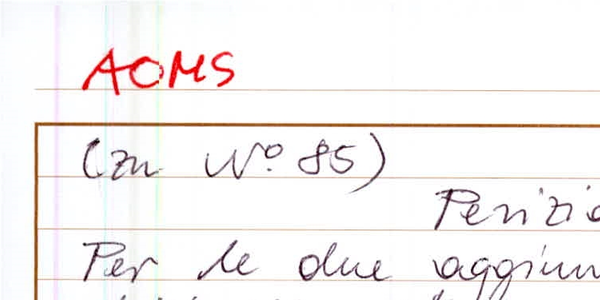 AOMS
(zu N° 85)
Perizi
Per le due aggiun